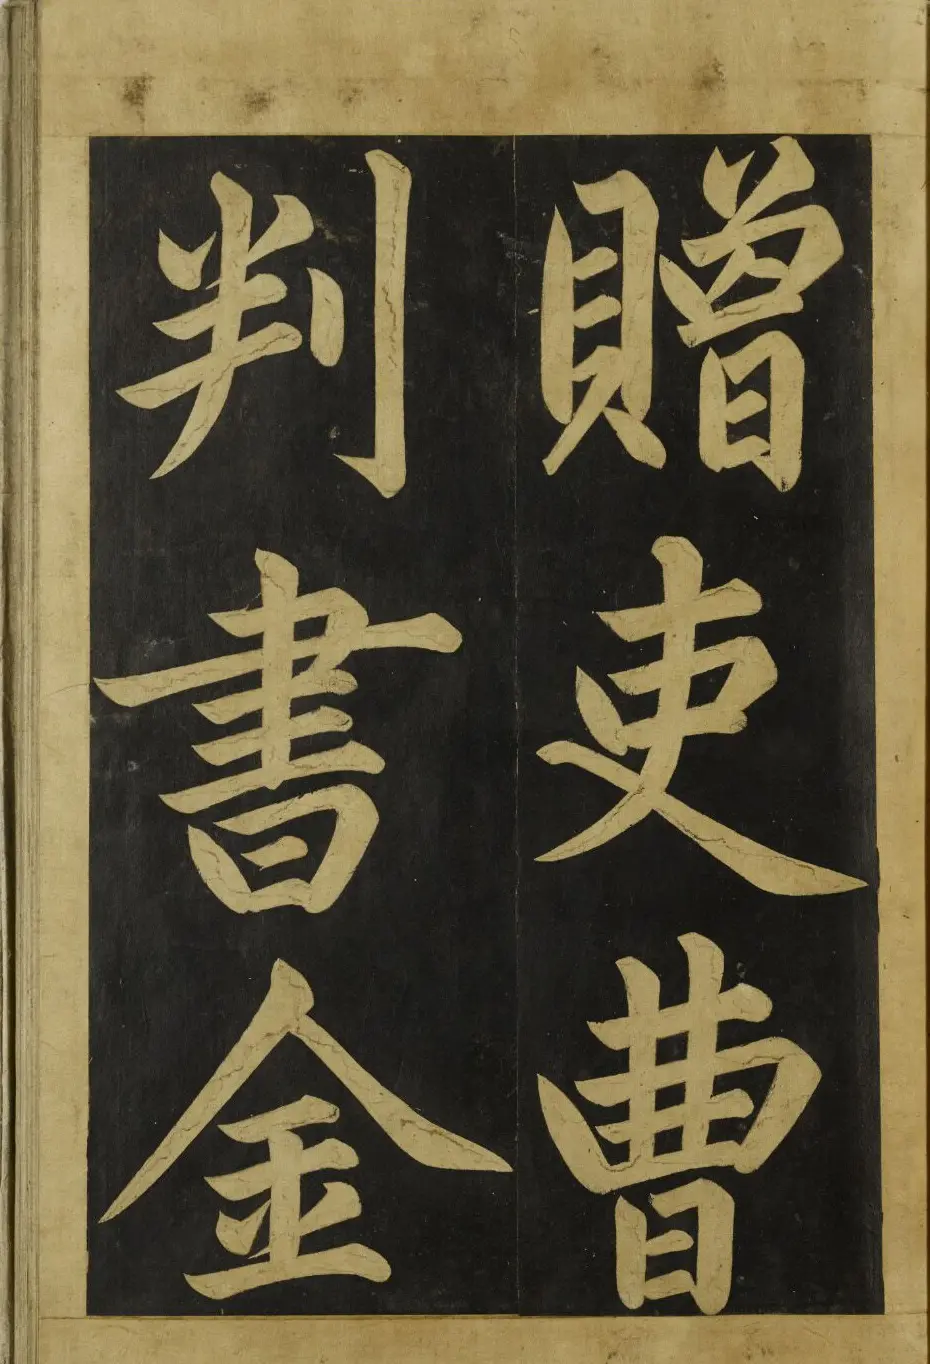 贈吏曹
判書金